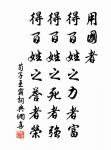 用國者
得百姓之力者富
得百姓之死者強
得百姓之譽者榮
荀子王霸詞典網喜